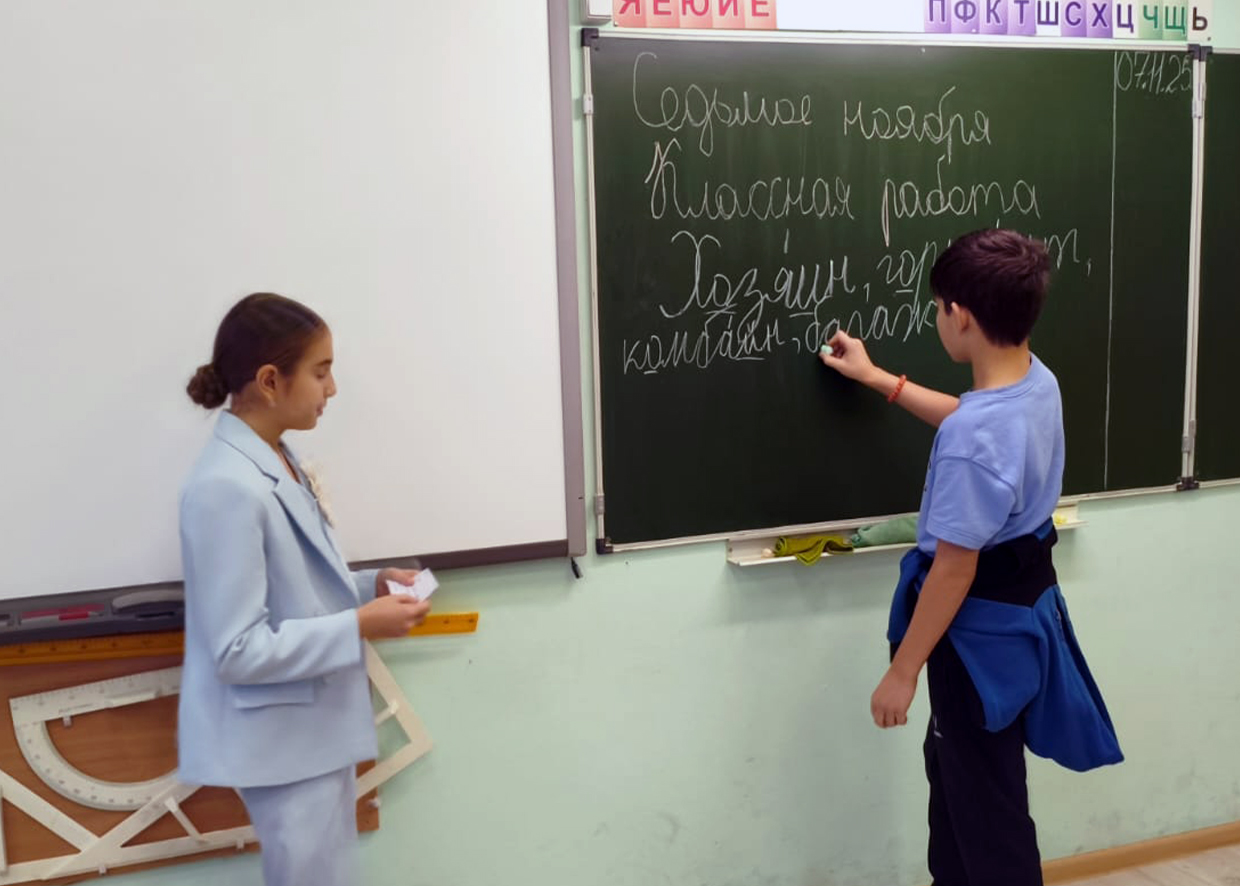 Я Е Ю И Е П Ф К Т Ш С Х Ц Ч Щ Ь
07.11.25
Седьмое ноября
Классная работа
Хозяин,
комбайн, багаж